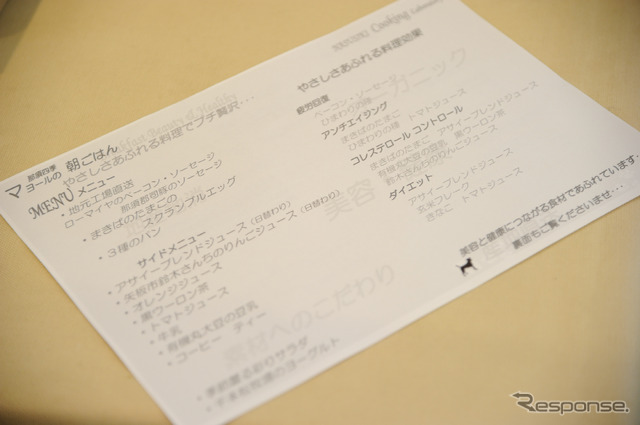 那須四季
マヨールの 朝ごはん
やさしさあふれる料理でプチ贅沢・・・
MENU メニュー
・地元工場直送
ローマイヤのベーコン・ソーセージ
那須郡司豚のソーセージ
・まきばのたまごの
スクランブルエッグ
・３種のパン
サイドメニュー
・アサイーブレンドジュース（日替わり）
・矢板市鈴木さんちのりんごジュース（日替わり）
・オレンジジュース
・黒ウーロン茶
・トマトジュース
・牛乳
・有機丸大豆の豆乳
・コーヒー　ティー
・季節薫る彩りサラダ
Cooking
やさしさあふれる料理効果
疲労回復
ベーコン・ソーセージ
ひまわりの種
アンチエイジング
まきばのたまご　トマトジュース
ひまわりの種　アサイーブレンドジュース
コレステロール コントロール
まきばのたまご　黒ウーロン茶
有機丸大豆の豆乳
鈴木さんちのりんごジュース
ダイエット
アサイーブレンドジュース
玄米フレーク
きなこ　トマトジュース
美容と健康につながる食材であふれています。
裏面もご覧くださいませ・・・
美容
素材へのこだわり
Response.